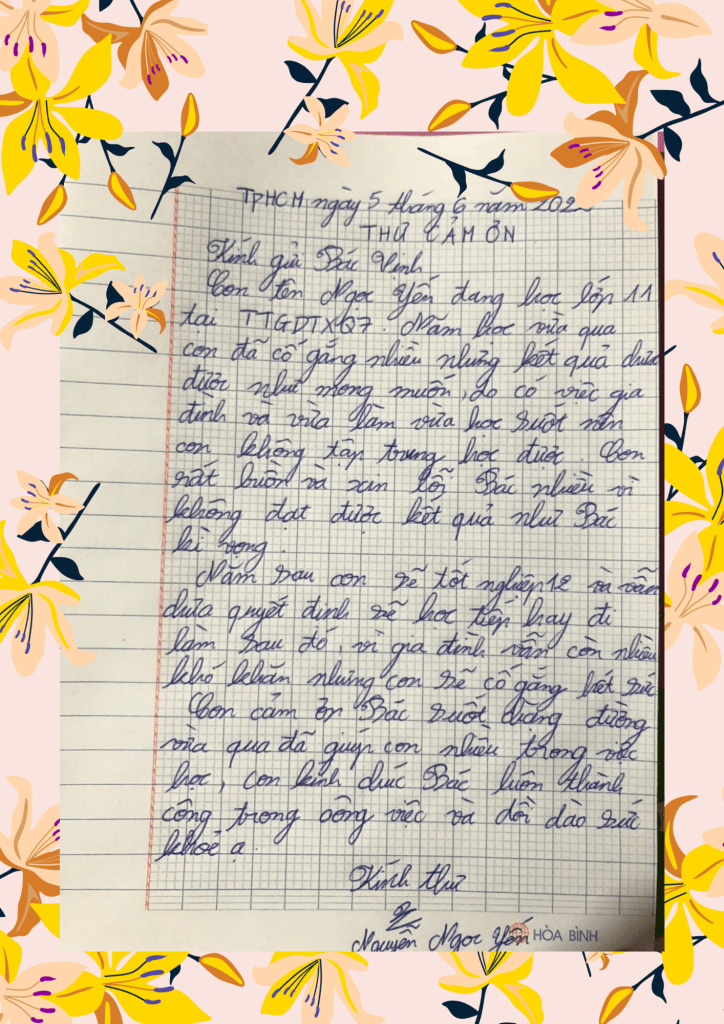 TPHCM ngày 5 tháng 6 năm 202
THƯ CẢM ƠN
Kính gửi Bác Vinh
Con tên Ngọc Yến đang học lớp 11
tại TTGDTXQ7. Năm học vừa qua
con đã cố gắng nhiều nhưng kết quả chưa
được như mong muốn, do có việc gia
đình và vừa làm vừa học suột nên
con không tập trung học được. Con
rất buồn và xin lỗi Bác nhiều vì
không đạt được kết quả như Bác
kì vọng.
Năm sau con sẽ tốt nghiệp 12 và vẫn
chưa quyết định sẽ học tiếp hay đi
làm sau đó, vì gia đình vẫn còn nhiều
khó khăn nhưng con sẽ cố gắng hết sức
Con cảm ơn Bác suốt chặng đường
vừa qua đã giúp con nhiều trong việc
học, con kính chúc Bác luôn thành
công trong công việc và dồi dào sức
khoẻ ạ.
Kính thư
Nguyễn Ngọc Yến
HÒA BÌNH